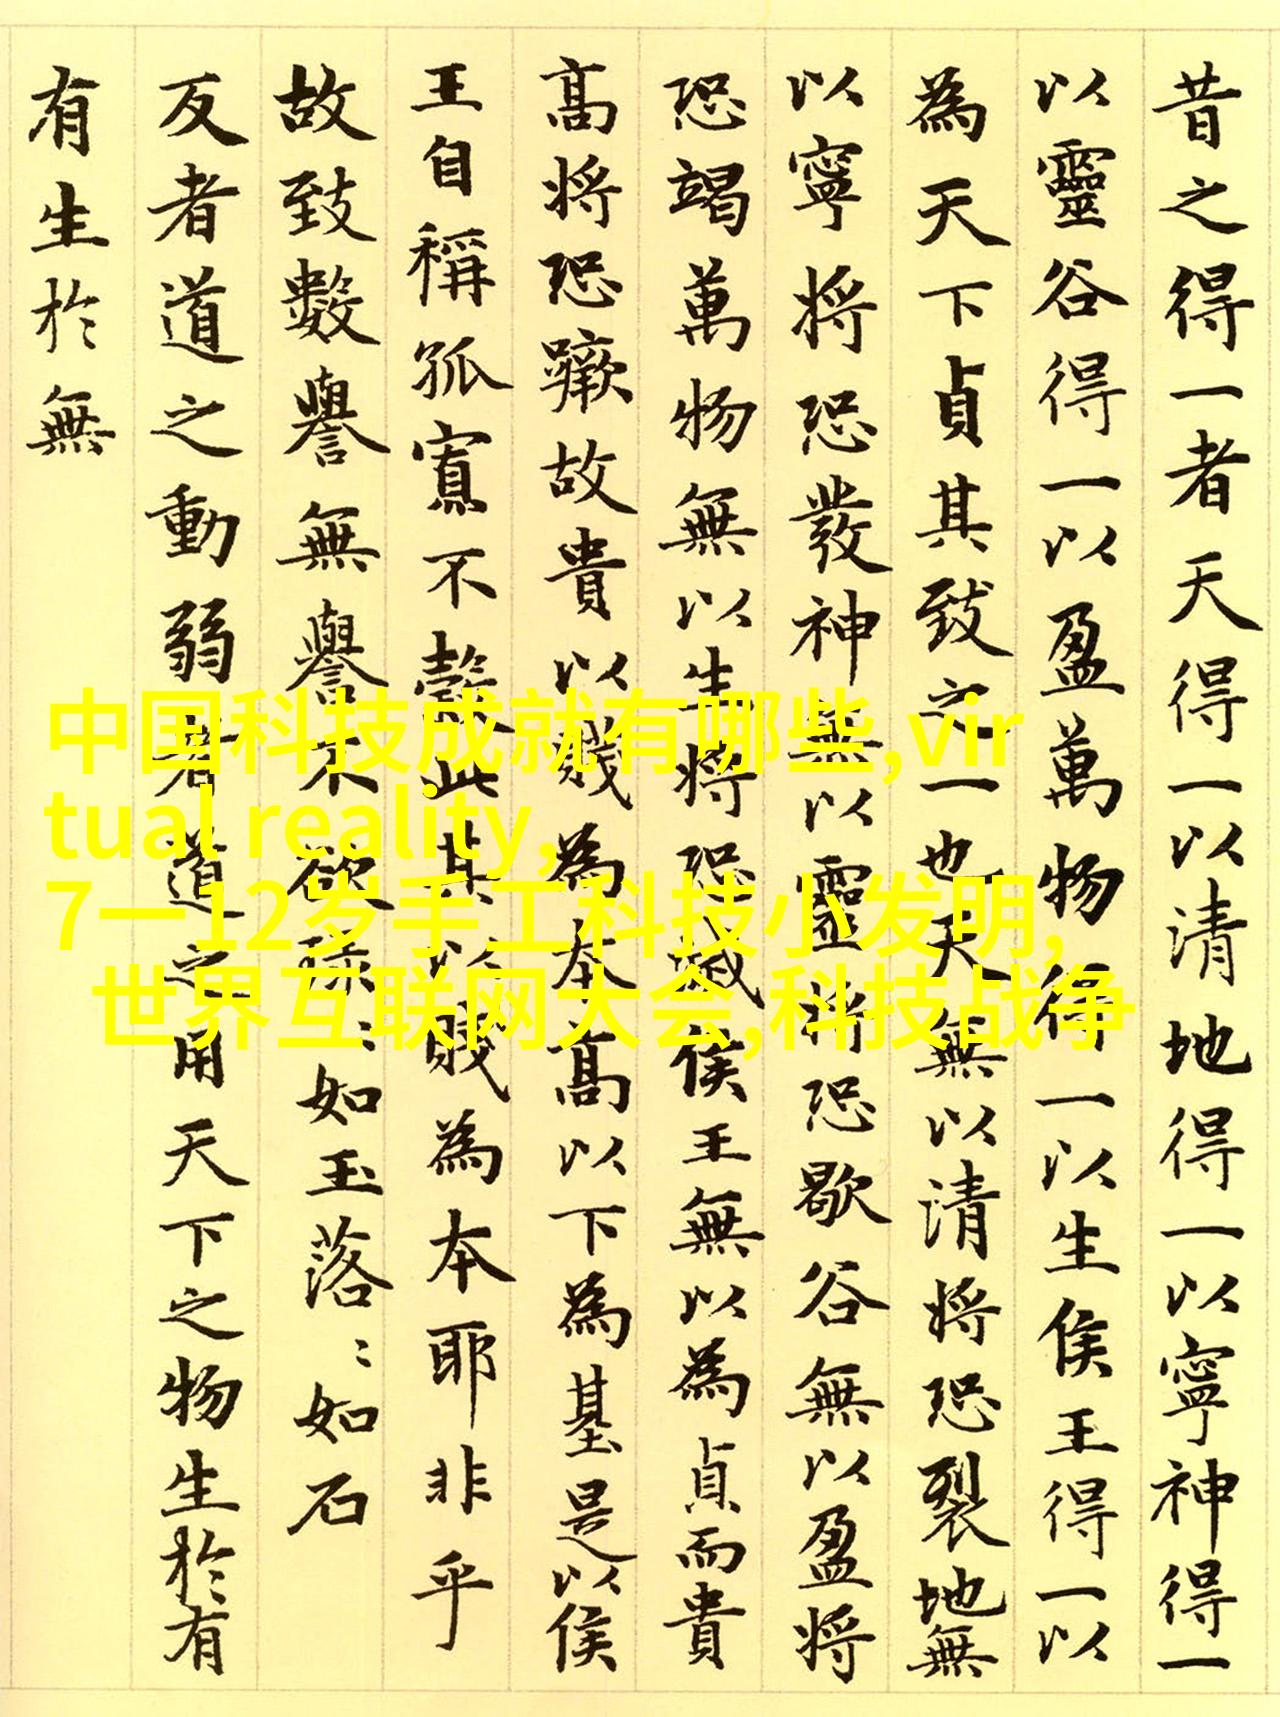 昔之得一者天得一以清地得一以寧神得一
以靈谷得一以盈萬物得一以生侯王得一以
為天下貞其致之一也天無以清將恐裂地無
以寧將恐發神無以靈將恐歇谷無以盈將
恐竭萬物無以生將恐滅侯王無以為貞而貴
高將恐蹶故貴以賤為本高以下為基是以侯
王自稱孤寡不穀此其以賤為本耶非乎
故致數譽無譽不欲琭:如玉落:如石
反者道之動弱者道之用天下之物生於有
有生於無
中国科技成就有哪些,vir
tual reality,
7一12岁手工科技小发明,
世界互联网大会,科技战争